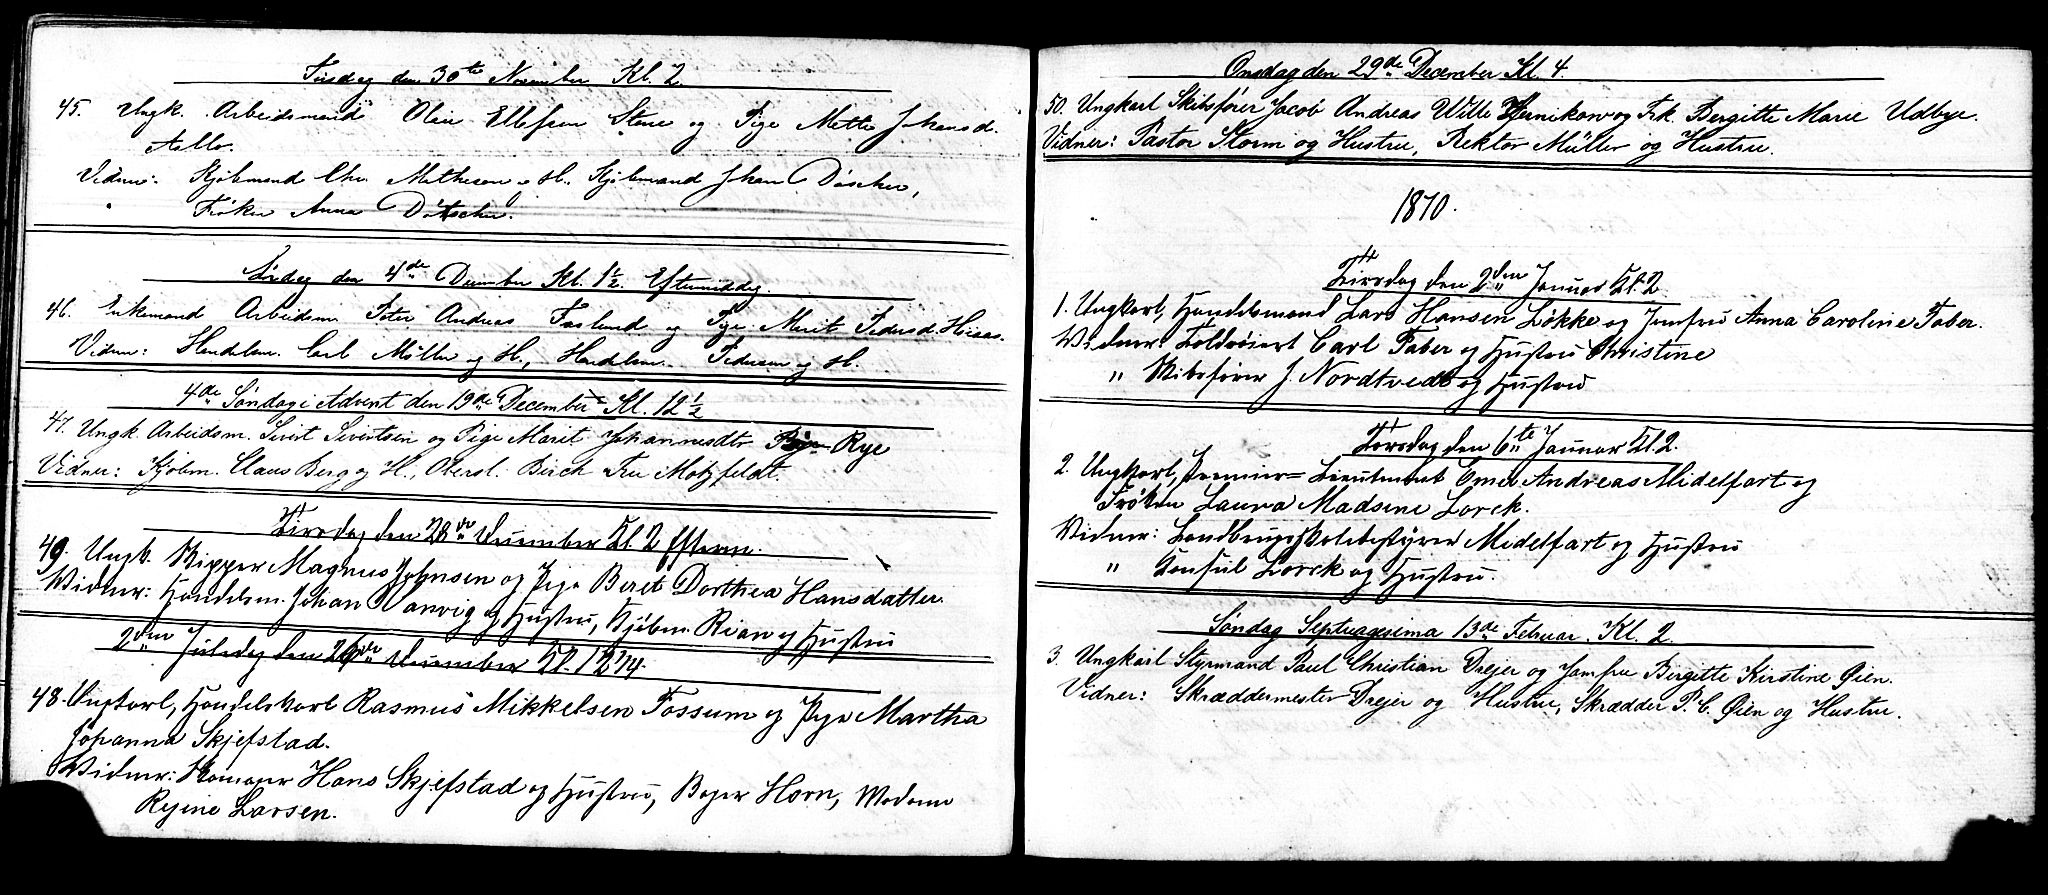 Tirsdag den 30te November Kl. 2
45. Ungk. Arbeidsmand Olaus Ellefsen Stene og Pige Mette Johansd.
Aalbo.
Vidner: Kjøbmand Chr. Mathesen og H., Kjøbmand Johan Döscher,
" Frøken Anna Dötscher.
Lørdag den 4de December Kl. 1½ Eftermiddag.
46. Enkemand Arbeidsm. Peter Andreas Foslund og Pige Marit Pedersd.
Vidner: Handelsm. Carl Møller og H., Handelsm. Pedersen og H.
4de Søndag i Advent den 19de December Kl. 12½
47. Ungk. Arbeidsm. Sivert Sivertsen og Pige Marit Johannesdtr. Rye
Vidner: Kjøbm. Claus Berg og H., Oberstl. Birch Fru Motzfeldt.
Tirsdag den 28de December Kl. 2 Efterm.
49. Ungk. Skipper Magnus Johnsen og Pige Beret Dorthea Hansdatter.
Vidner: Handelsm. Johan Vanvig og Hustru, Kjøbm. Rian og Hustru
2den Juledag den 26de December Kl. 12¾.
48. Ungkarl, Handelskarl Rasmus Mikkelsen Fossum og Pige Martha
Johanna Skjefstad.
Vidner: Hans Skjefstad og Hustru, Bager Horn, Madame
Regine Larsen.
Onsdag den 29de December Kl. 4
50. Ungkarl Skibsfører Jacob Andreas Wille og Frk. Bergitte Marie Udbye.
Vidner: Pastor Storm og Hustru, Rektor Müller og Hustru.
1870.
Tirsdag den 2den Januar Kl. 2
1. Ungkarl, Handelsmand Lars Hansen Løkke og Jomfru Anna Caroline Faber.
Vidner: Toldrorist Carl Faber og Hustru Christine
" Skibsfører J. Nordtvedt og Hustru
Torsdag den 6te Januar Kl. 2.
2. Ungkarl, Premier=Lieutenant Emil Andreas Midelfart og
Frøken Laura Madsine Lorck.
Vidner: Landbrugsskolebestyrer Midelfart og Hustru
" Konsul Lorck og Hustru.
Søndag Septuagesima 13de Februar Kl. 2.
3. Ungkarl Styrmand Paul Christian Drejer og Jomfru Birgitte Kirstine Øien.
Vidner: Skræddermester Drejer og Hustru, Skrædder P. C. Øien og Hustru.